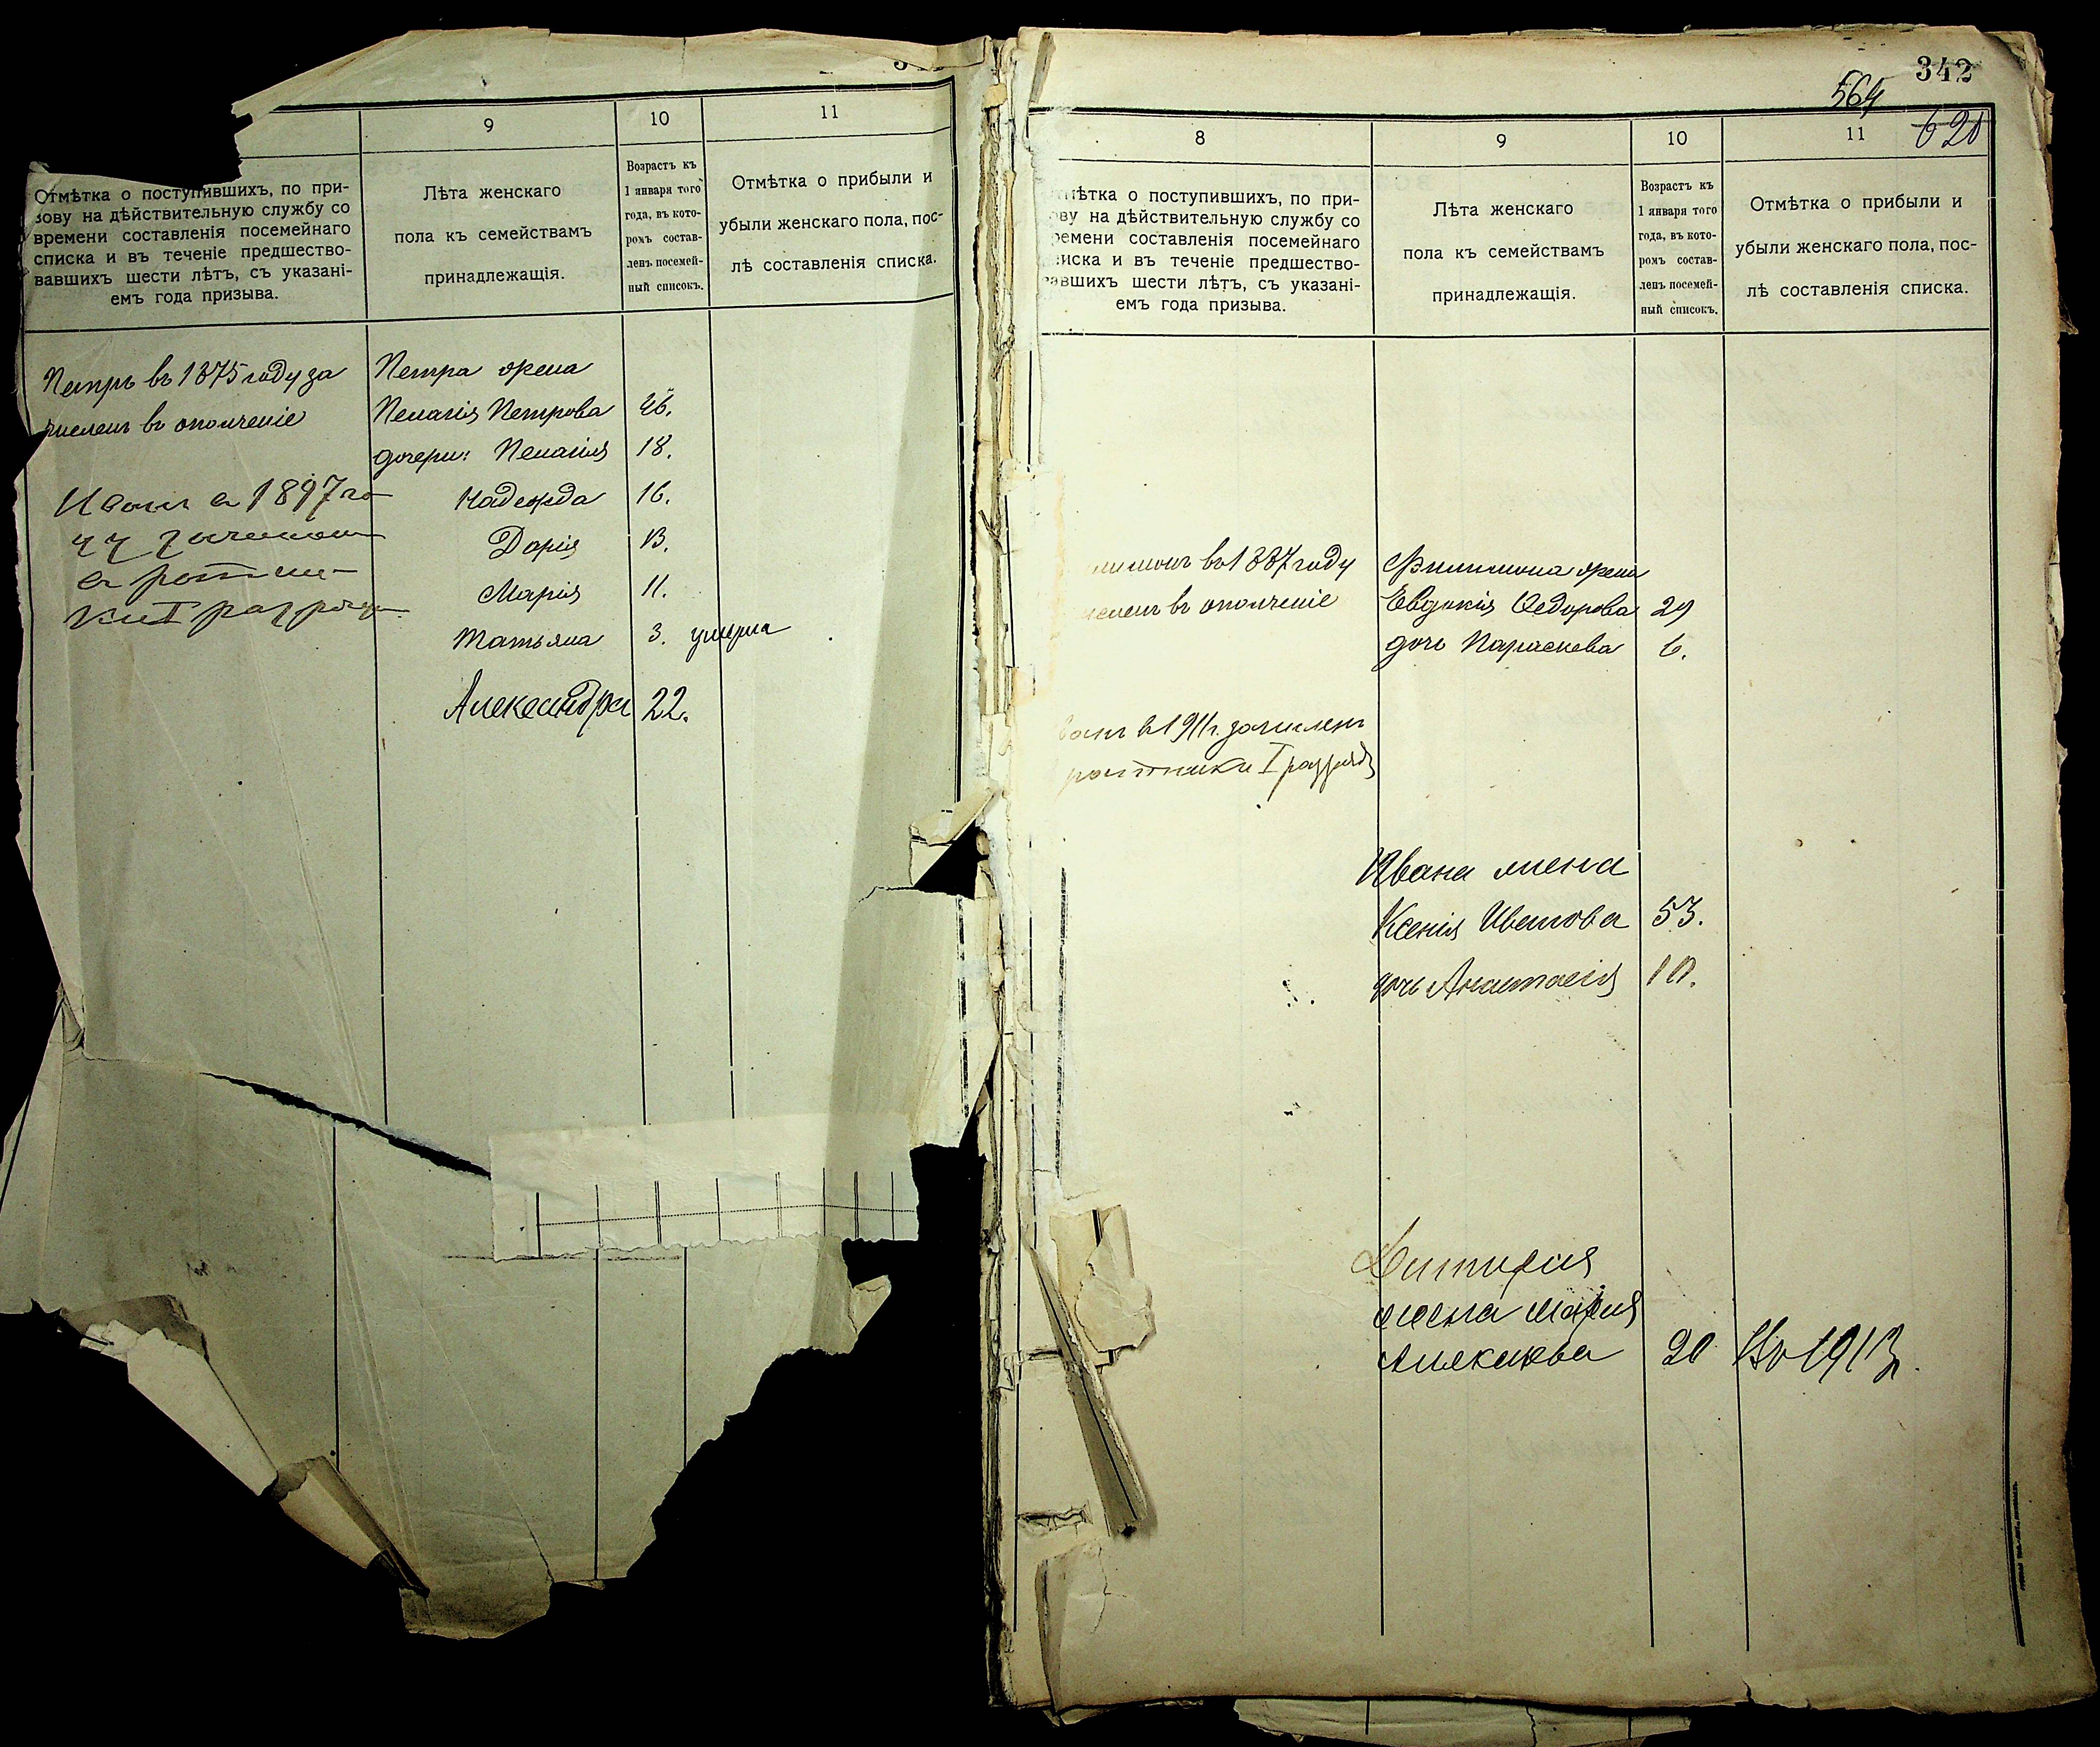 9
10
11
Отмѣтка о поступившихъ, по при-
зову на дѣйствительную службу со
времени составленія посемейнаго
списка и въ теченіе предшество-
вавшихъ шести лѣтъ, съ указані-
емъ года призыва.
Лѣта женскаго
пола къ семействамъ
принадлежащія.
Возрастъ къ
1 января того
года, въ кото-
ромъ состав-
ленъ посемей-
ный списокъ.
Отмѣтка о прибыли и
убыли женскаго пола, пос-
лѣ составленія списка.
Петръ въ 1875 году за
численъ въ ополченіе
Иванъ въ 1897 го
ду зачислен
в ратни-
ки I разряда
Петра жена
Пелагія Петрова 46.
дочери: Пелагія 18.
Надежда 16.
Дарія 13.
Марія 11.
Татьяна 3. умерла
Александра 22.
342
564
620
8
9
10
11
мѣтка о поступившихъ, по при-
ову на дѣйствительную службу со
ремени составленія посемейнаго
иска и въ теченіе предшество-
авшихъ шести лѣтъ, съ указані-
емъ года призыва.
Лѣта женскаго
пола къ семействамъ
принадлежащія.
Возрастъ къ
1 января того
года, въ кото-
ромъ состав-
ленъ посемей-
ный списокъ.
Отмѣтка о прибыли и
убыли женскаго пола, пос-
лѣ составленія списка.
лимонъ въ 1887 году
численъ въ ополченіе
Филимона жена
Евдокія Ѳедорова 29
дочь Параскева 6.
ванъ в 1911 г. зачисленъ
ратники I разряда
Ивана жена
Ксенія Иванова 53.
дочь Анастасія 10.
Дмитрия
жена Мария
Алексеева 20 Въ 1913